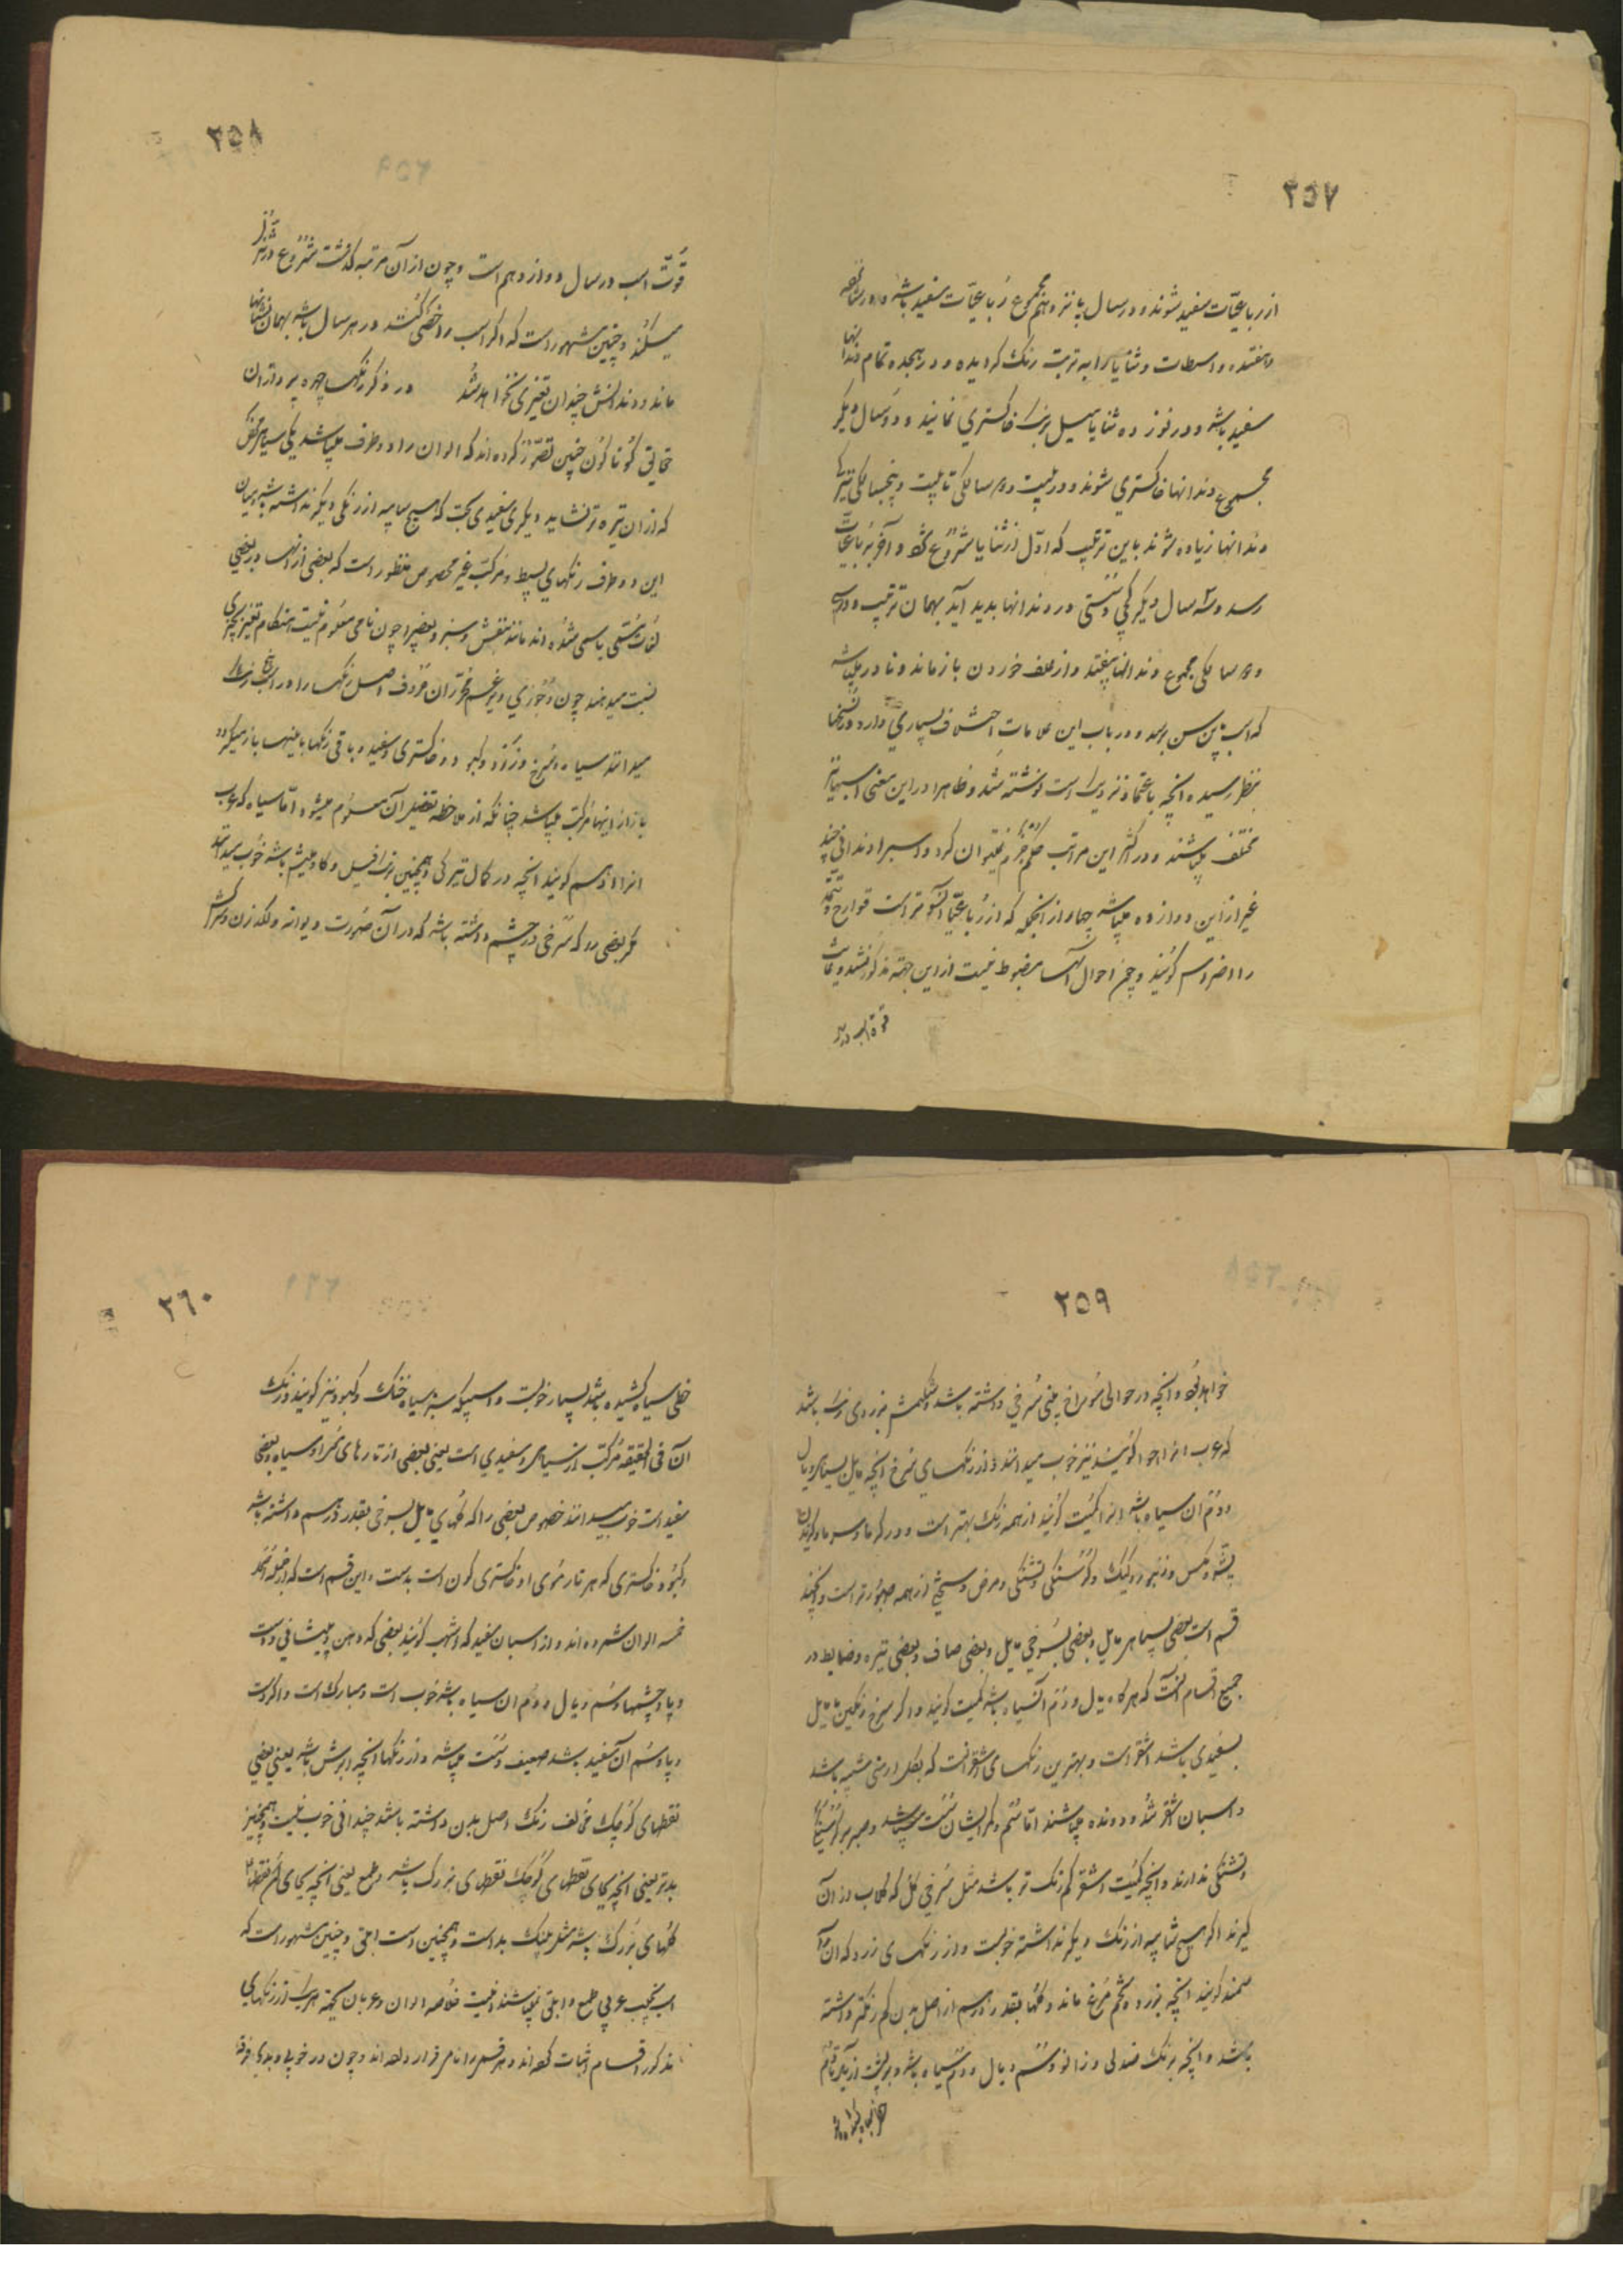 ٢٥٧
از رباعیّات سفید شوند و در سال پانزدهم مجموع رُباعیّات سفید باشد و در شانزده
و هفتده واسطات و ثنایا را به ترتیب رنک کردیده و در هیجده تمام دندانها
سفید باشد و در نوزده ثنایا میل برنک خاکستری نمایند و دو سال دیکر
مجموع دندانها خاکستری شوند و در بیست و سالکی تا بیست و پنجسالکی تیرکی
دندانها زیاده شوند باین ترتیب که اوّل از ثنایا شروع کند و آخر برباعیات
رسد و سه سال دیکر کجی و سستی در دندانها پدید آید بهمان ترتیب و در سی
و سالکی مجموع دندانها بیفتد و از علف خوردن باز ماند و نادر میباشد
که اسب باین سن برسد و در باب این علامات اختلاف بسیاری دارد و در نسخها
بنظر رسیده آنچه باعتماد نزدیک است نوشته شد و ظاهرا در این معنی اسبها نیز
مختلف میباشند و در اکثر این مراتب حکم جزم نمیتوان کرد و اسبرا دندانی چند
غیر از این دوازده میباشد چهار از آنجمله که از رُباعیّات آنسو تر است قوارح و تتمّه
را اضراس کویند و چون احوال آنها مضبوط نیست از این جهته مذکور نشد و غایت
قوة اسب در
٢٥٨
قُوّت اسب در سال دوازدهم است و چون از آن مرتبه کذشت شروع در تنزّل
میکند و چنین مشهور است که اکر اسب را خصّی کنند در هر سال باشد بهمان نشانها
ماند و دندانش چندان تغیری نخواهد شد در ذکر رنکها چهره پردازان
حقایق کوناکون چنین تصوّر کرده‌اند که الوان را دو طرف میباشد یکی سیاهی
که از آن تیره تر نشاید و دیکری سفیدی بحت که هیچ شایبه از رنکی دیکر نداشته باشد و میان
این دو طرف رنکهای بسیط و مرکّب غیر محصوص منظور است که بعضی از آنها در بعضی
لغات مُسمّی باسمی شده‌اند مانند بنفش و سبز و بعضی را چون نامی معلوم نیست هنکام تعبیر بچیزی
نسبت میدهند چون جوزی و غیرهم محرران حروف اصل رنکها را در اسب پنج رنک
میدانند سیاه و سرخ و زرد و کبود و خاکستری و سفید و باقی رنکها باینها باز میکردد
یا از اینها مرکب میباشد چنانکه از ملاحظه تفضیل آن معلوم میشود امّا سیاه که عرب
آنرا ادهم کویند آنچه در کمال تیرکی و همچنین برنک فیل و کاومیش باشد خوب میدانند
مکر بعضی را که سرخی در چشم داشته باشد که در آن صورت دیوانه و لکدزن و سرکش
٢٥٩
خواهد بود و آنچه در حوالی سوراخ بینی سُرخی داشته باشد و شکمش بزردی زند باشد
که عرب آنرا احوا کویند نیز خوب میدانند و از رنکهای سُرخ آنچه مایل بسیاهی و یال
و دُم آن سیاه باشد آنرا کمیت کویند از همه رنک بهتر است و در کرما و سرما و کزیدن
پشّه و مکس و زنبور و کیک و کرسنکی و تشنکی و مرض و سختی از همه صبورتر است و چند
قسم است بعضی بسیاهی مایل و بعضی بسُرخی مایل و بعضی صاف و بعضی تیره و ضابطه در
جمیع اقسام آنست که هرکاه یال و دُم آن سیاه باشد کمیت کویند و اکر سرخ رنکین مایل
بسفیدی باشد اشقر است و بهترین رنکهای اشقر آنست که بکل ارمنی شبیه باشد
و اسبان اشقر تند و دونده میباشند امّا سُم و کمر ایشان سُست میباشد و صبر بر کرسنکی
و تشنکی ندارند و آنچه کمیت و اشقر کم رنک تر باشد مثل سُرخی کُل که کلاب از آن
کیرند اکر هیچ شایبه از رنک دیکر نداشته خوبست و از رنکهای زرد که آن را
سمند کویند آنچه بزرده تخم مرغ ماند و کلها بقدر درهم از اصل بدن کم رنکتر داشته
باشد و آنچه برنک صندلی و زانو و سُم و یال و دُم سیاه باشد و بر پشت از یال تا دُم
٢٦٠
خطی سیاه کشیده باشد بسیار خوبست و اسبیکه سبز سیاه خنک و کبود نیز کویند و رنک
آن فی الحقیقه مُرکّب از سیاهی و سفیدی است یعنی بعضی از تارهای موی او سیاه و بعضی
سفید است خوب میدانند خصوص بعضی را که کلهای مایل بسرخی بقدر درهم داشته باشد
و کبود خاکستری که هر تار موی او خاکستری کون است بدست و این قسم است که از جمله
خمسه الوان شمرده‌اند و از اسبان سفید که اشهب کویند بعضی که دهن و پیشانی و دست
و پا و چشمها و سُم و یال و دم آن سیاه باشد خوب است و مبارک است و اکر دست
و پا و سُم آن سفید باشد ضعیف و سُست میباشد و از رنکها آنچه ابرش باشد یعنی بعضی
نقطهای کوچک مخالف رنک اصل بدن داشته باشد چندانی خوب نیست و همچنین
بدتر یعنی آنچه بجای نقطهای کوچک نقطهای بزرک باشد و ملمع یعنی آنچه بجای نقطها
کلهای بزرک باشد مثل پلنک بد است و همچنین است ابلق و چنین مشهور است که
اسب نجیب عربی ملمع و ابلق نمیباشند اینست خلاصه الوان و عربان بجهته هر یک از رنکهای
مذکور اقسام اثبات کرده‌اند و هر قسم را نام قرار داده‌اند و چون در خوبی و بدی